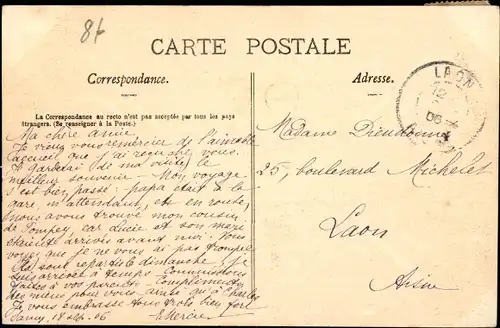 8f
CARTE POSTALE
Correspondance.
Adresse.
La Correspondance au recto n'est pas acceptée par tous les pays
étrangers. (Se renseigner à la Poste.)
LAON
12
06
Ma chère amie,
Je viens vous remercier de l'aimable
accueil que j'ai reçu chez vous.
Je garderai de ma visite le
meilleur souvenir. Mon voyage
s'est bien passé : papa était à la
gare, m'attendant, et en route,
nous avons trouvé mon cousin
de Pompey, car Lucie et son mari
étaient arrivés avant moi. Vous
voyez que je ne vous ai pas trompée
sont repartis dimanche, je
suis arrivée à temps.
faites à vos parents
pour vous ainsi qu'à Charles
Je vous embrasse tous trois bien fort
18 06
Madame Dieudonné
25, boulevard Michelet
Laon
Aisne